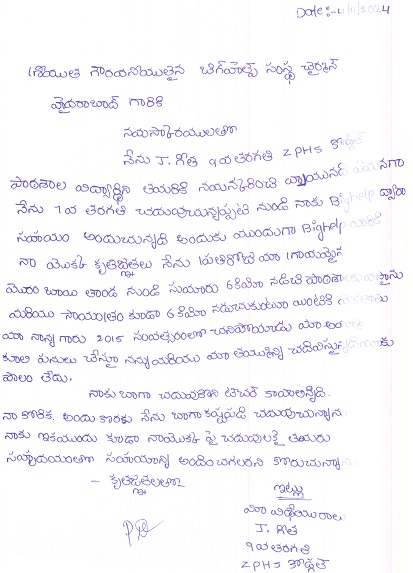 Date:- 4/11/2024
శ్రీయుత గౌరవనీయులైన బిగ్‌హెల్ప్ సంస్థ చైర్మన్
హైదరాబాద్ గారికి
నమస్కారములతో
నేను J. గీత 9వ తరగతి ZPHS
పాఠశాల విద్యార్థిని తమరికి నమస్కరించి వ్రాయునది
నేను 7వ తరగతి చదువుచున్నప్పటి నుండి నాకు Bighelp ద్వారా
సహాయం అందుచున్నది అందుకు ముందుగా Bighelp వారికి
నా యొక్క కృతజ్ఞతలు నేను ప్రతిరోజు మా గ్రామమైన
బాయి తాండ నుండి సుమారు 6 కిమీ నడిచి పాఠశాలకు
మరియు సాయంత్రం కూడా 6 కిమీ నడుచుకుంటూ ఇంటికి
మా నాన్న గారు 2015 సంవత్సరంలో చనిపోయాడు మా అమ్మ
కూలి పనులు చేస్తూ నన్ను మరియు మా తమ్ముణ్ణి చదివిస్తున్నది మాకు
పొలం లేదు.
నాకు బాగా చదువుకొని టీచర్ కావాలన్నది
నా కోరిక. అందు కొరకు నేను బాగా కష్టపడి చదువుచున్నాను
నాకు ఇకముందు కూడా నాయొక్క పై చదువులకై తమరు
సహృదయంతో సహాయాన్ని అందించగలరని కోరుచున్నాను
- కృతజ్ఞతలతో
ఇట్లు
మీ విధేయురాలు
J. గీత
9వ తరగతి
ZPHS